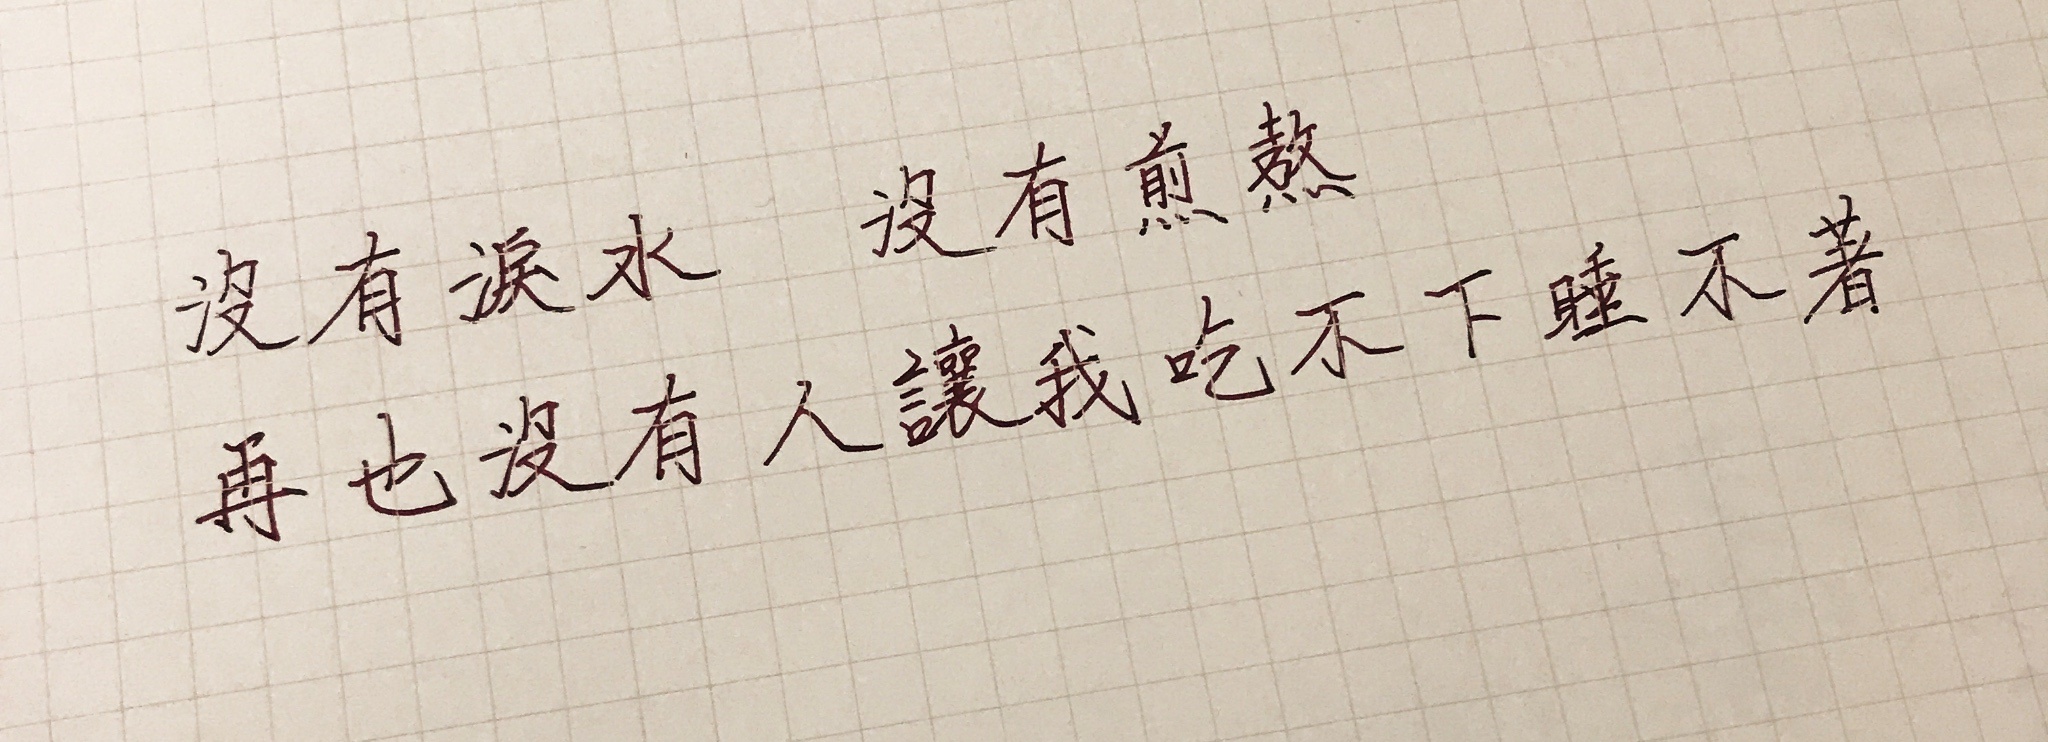 沒有淚水　沒有煎熬
再也沒有人讓我吃不下睡不著